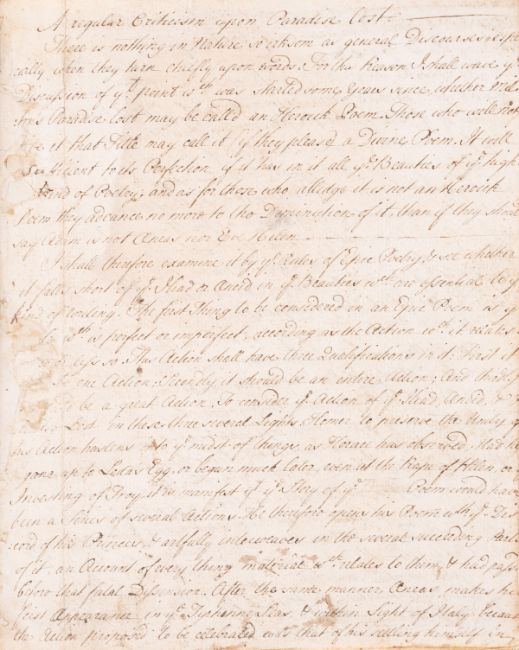 A regular Criticism upon Paradise Lost
There is nothing in Nature so irksom as general Discourses, espe
cially when they turn chiefly upon words. For this Reason I shall wave ye
Discussion of yt point wch was started some Years since, whether Mil
tons Paradise lost may be called an Heroick Poem. Those who will not
it that Title may call it (if they please) a Divine Poem. It will
sufficient to its Perfection, if it has in it all ye Beauties of ye high
kind of Poetry; and as for those who alledge it is not an Heroick
Poem they advance no more to the Diminution of it, than if they should
say Adam is not Aneas nor Eve Helen.
I shall therefore examine it by ye Rules of Epic Poetry, & see whether
it falls short of ye Iliad or Aneid in ye Beauties wch are essential to yt
kind of writing. The first Thing to be considered in an Epic Poem is ye
wch is perfect or imperfect, according as the Action wch it relates
less so. This Action shall have three Qualifications in it. First it
be one Action; Secondly it should be an entire Action; And thirdly
to be a great Action. To consider ye Action of ye Iliad, Aneid, &
Lost in these three several Lights. Homer to preserve the Unity of
his Action hastens into ye midst of things, as Horace has observed. Had he
gone up to Leda's Egg, or begun much later, even at the Rape of Helen, or
Investing of Troy, it is manifest yt ye Story of ye Poem would have
been a Series of several Actions. He therefore opens his Poem with ye Dis
cord of his Princes, & artfully interweaves in the several succeeding Parts
of it, an Account of every thing material wch relates to them, & had pass
before that fatal Dissension. After the same manner, Aneas makes his
first Appearance in ye Tyrrhene Seas, & within Sight of Italy, because
the Action proposed to be celebrated was that of his settling himself in